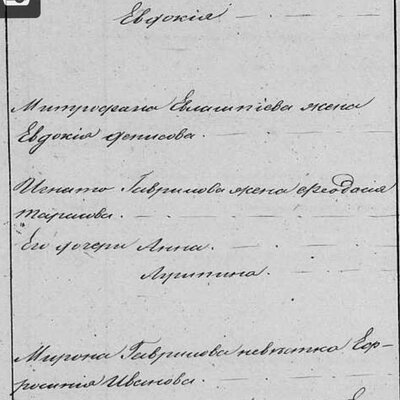 Евдокія
Митрофана Евлампіева жена
Евдокія Денисова.
Игната Гаврилова жена Феодосія
Тарасова.
Его дочери Анна.
Мирона Гаврилова невѣстка Еф-
росинія Иванова.